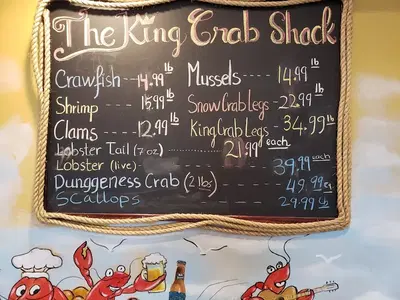 The King Crab Shack
Crawfish --14.99 lb
Mussels ---- 14.99 lb
Shrimp ---- 15.99 lb
Snow Crab Legs - 22.99 lb
Clams ---- 12.99 lb
King Crab Legs - 34.99 lb
Lobster Tail (7 oz) ---- 21.99 each
Lobster (live) ---- 39.99 each
Dunggeness Crab (2 lbs) ---- 49.99
Scallops ---- 29.99 lb